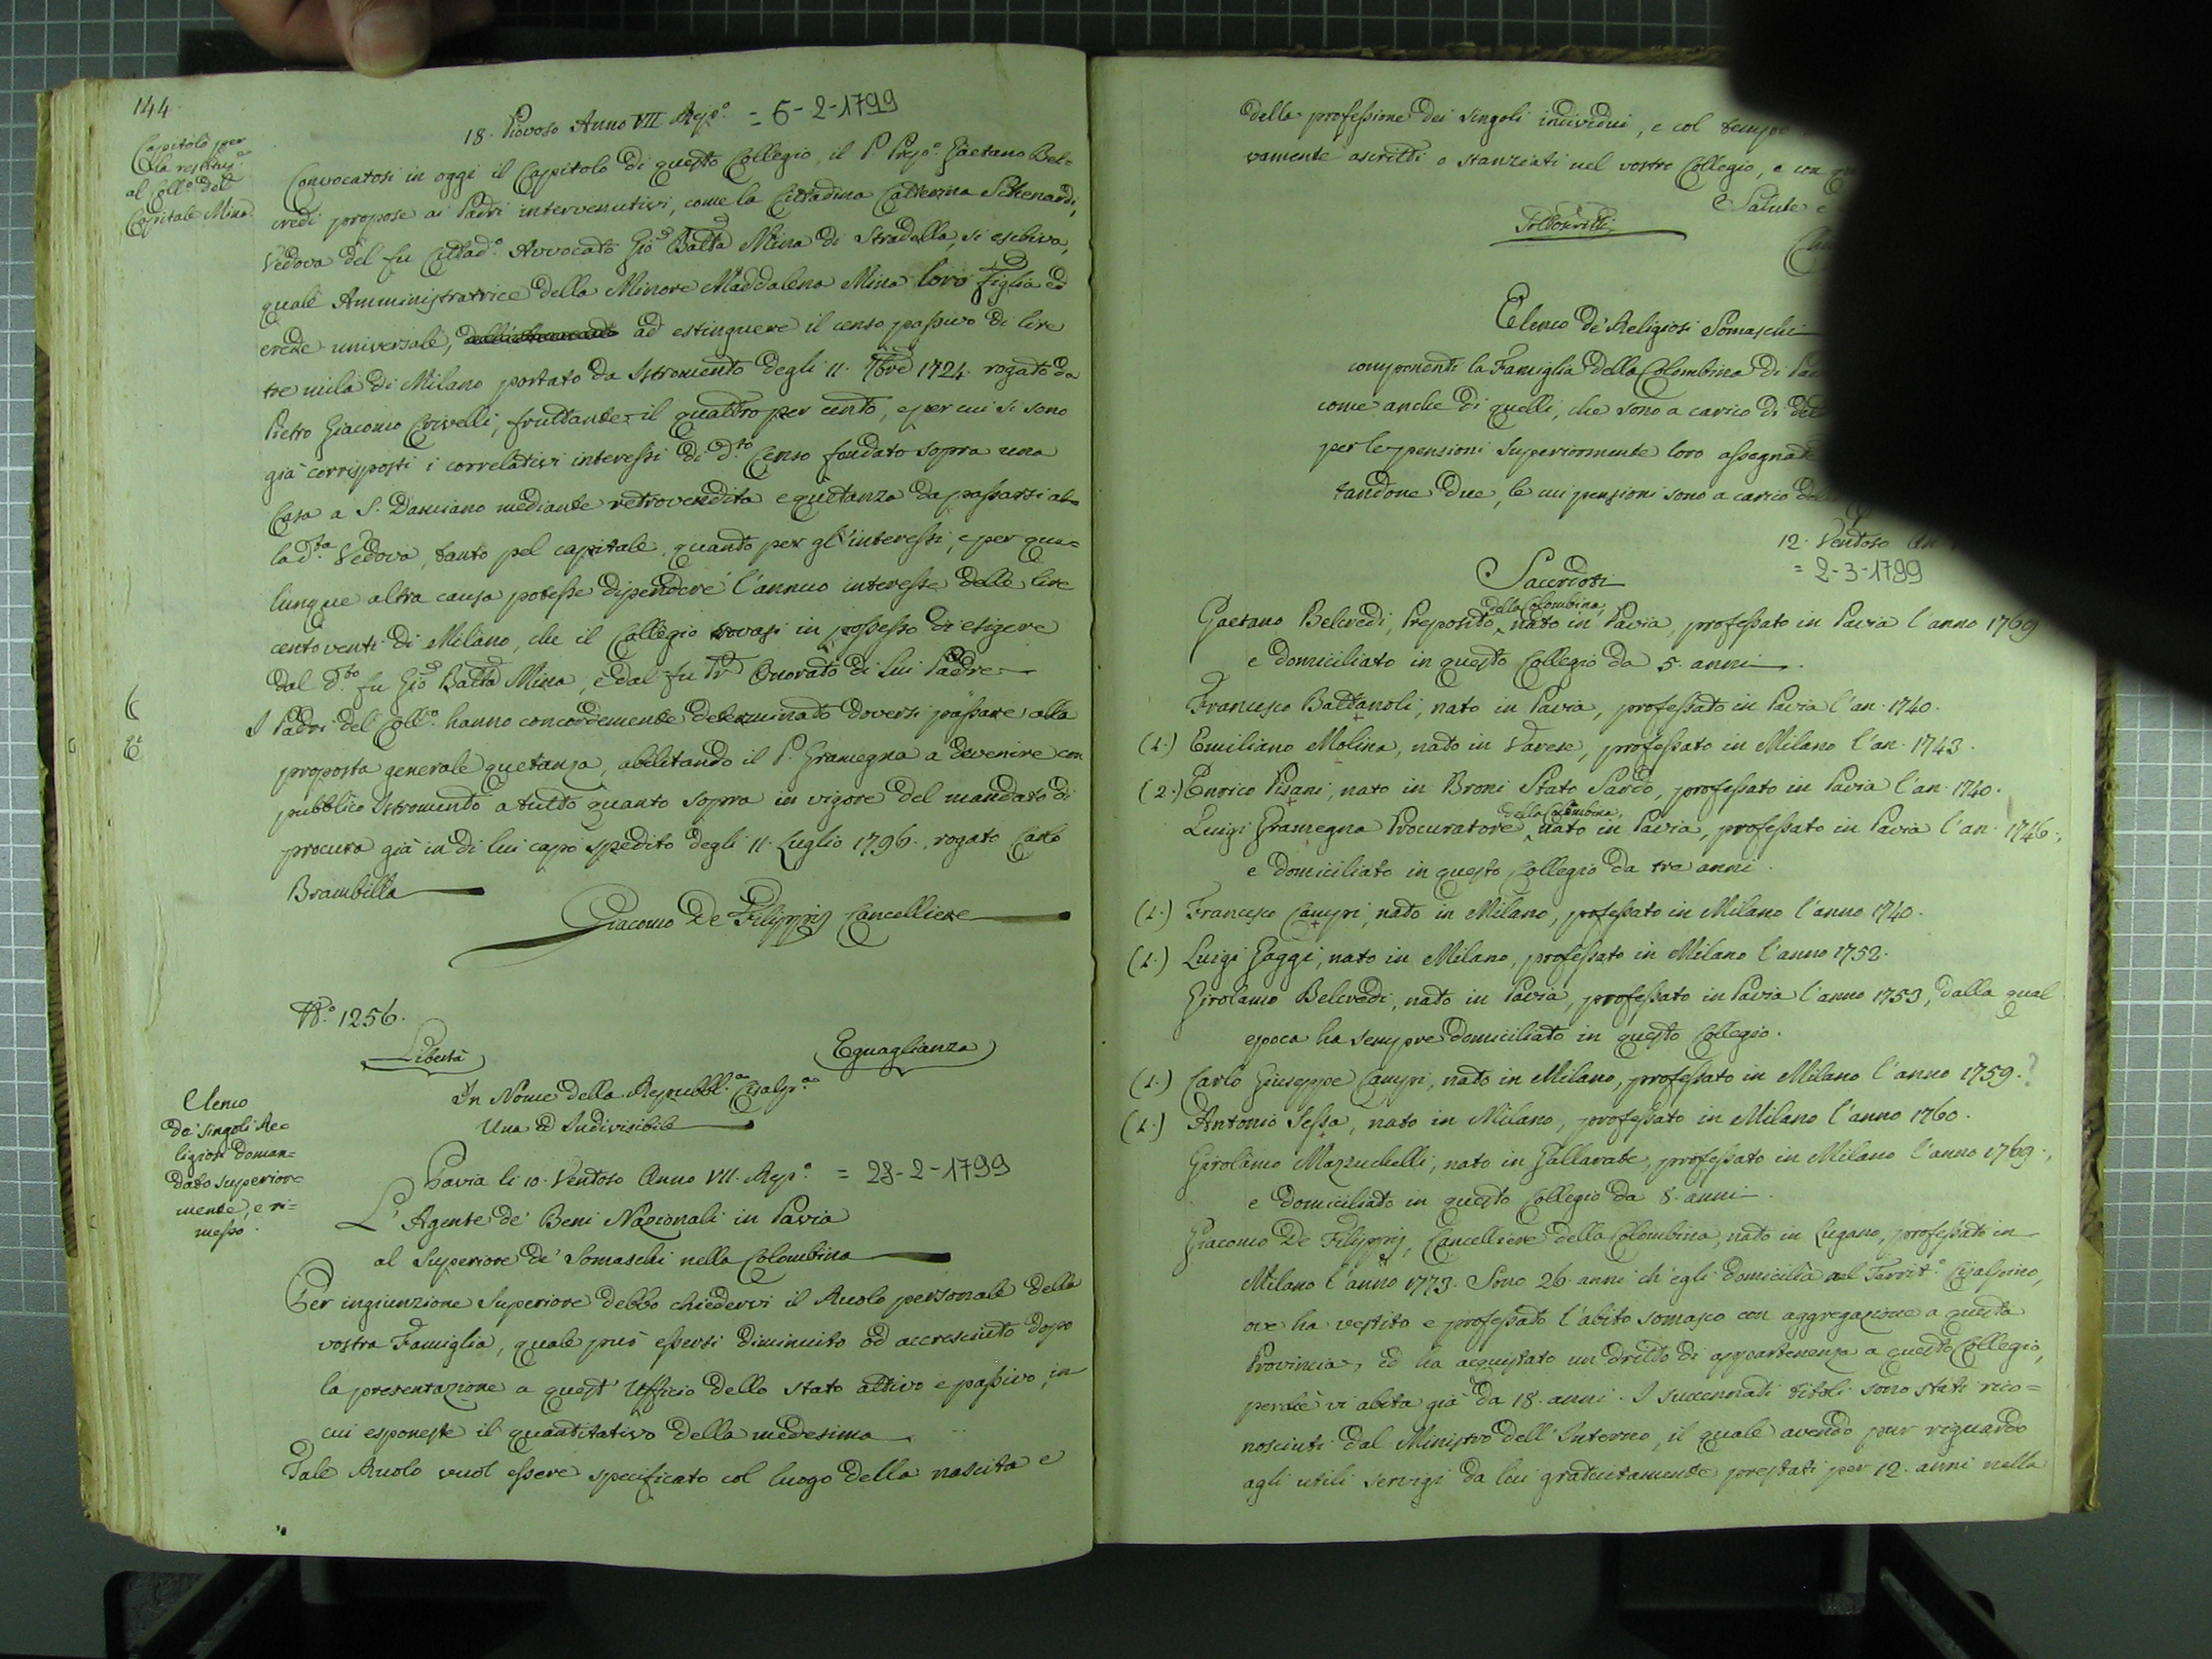 144.
Capitolo per
la restituz.e
al Coll.o del
Capitale Mina
18. Piovoso Anno VII Rep.o = 6-2-1799
Convocatosi in oggi il Capitolo di questo Collegio, il P. Prep.o Gaetano Bel=
credi propose ai Padri intervenutivi, come la Cittadina Catterina Schenardi,
Vedova del fu Cittad.o Avvocato Gio Batta Mina di Stradella, si esebiva,
quale Amministratrice della Minore Maddalena Mina loro figlia ed
erede universale, ad estinguere il censo passivo di lire
tre mila di Milano portato da Istromento degli 11. 1724. rogato da
Pietro Giacomo Crivelli, fruttante il quattro per cento, e per cui si sono
già corrisposti i correlativi interessi di d.to Censo fondato sopra una
Casa a S. Damiano mediante retrovendita e quetanza da passarsi al=
la d.ta Vedova, tanto pel capitale, quanto per gl'interessi, e per qua=
lunque altra causa potesse dipendere l'annuo interesse delle lire
cento venti di Milano, che il Collegio trovasi in possesso di esigere
dal d.to fu Gio Batta Mina, e dal fu Onorato di Lui Padre
I Padri del Coll.o hanno concordemente determinato doversi passare alla
proposta generale quetanza, abilitando il P. Gramegna a devenire con
pubblico Istromento a tutto quanto sopra in vigore del mandato di
procura già in di lui capo spedito degli 11. Luglio 1796. rogato Carlo
Brambilla
Giacomo De Filippis Cancelliere
N.o 1256.
Libertà Eguaglianza
In Nome della Repubbl.a Cisalp.a
Una ed Indivisibile
Elenco
de' singoli Re=
ligiosi doman=
dato superior=
mente, e ri=
messo.
Pavia li 10. Ventoso Anno VII. Rep.o = 28-2-1799
L'Agente de' Beni Nazionali in Pavia
al Superiore de' Somaschi nella Colombina
Per ingiunzione Superiore debbo chiedervi il Ruolo personale della
vostra Famiglia, quale può essersi diminuito od accresciuto dopo
la presentazione a quest' Ufficio dello stato attivo e passivo, in
cui esponeste il quantitativo della medesima
Tale Ruolo vuol essere specificato col luogo della nascita e
della professione dei singoli individui, e col tempo
vamente ascritti o stanziati nel vostro Collegio, e con
Salute e
Sottoscritti
Elenco de' Religiosi Somaschi
componenti la Famiglia della Colombina di
come anche di quelli, che sono a carico di
per le pensioni superiormente loro assegnate
tandone due, le cui pensioni sono a carico
12. Ventoso
= 2-3-1799
Sacerdoti
Gaetano Belcredi, Preposito della Colombina, nato in Pavia, professato in Pavia l'anno 1769
e domiciliato in questo Collegio da 5. anni.
Francesco Battanoli, nato in Pavia, professato in Pavia l'an. 1740.
(1.) Emiliano Molina, nato in Varese, professato in Milano l'an. 1743.
(2.) Enrico Pisani, nato in Broni Stato Sardo, professato in Pavia l'an. 1740.
Luigi Gramegna Procuratore della Colombina, nato in Pavia, professato in Pavia l'an. 1746.,
e domiciliato in questo Collegio da tre anni.
(1.) Francesco Campi, nato in Milano, professato in Milano l'anno 1740.
(1.) Luigi Gaggi, nato in Milano, professato in Milano l'anno 1752.
Girolamo Belcredi, nato in Pavia, professato in Pavia l'anno 1753, dalla qual
epoca ha sempre domiciliato in questo Collegio.
(1.) Carlo Giuseppe Campi, nato in Milano, professato in Milano l'anno 1759.?
(1.) Antonio Sessa, nato in Milano, professato in Milano l'anno 1760.
Girolamo Mazzuchelli, nato in Gallarate, professato in Milano l'anno 1769.,
e domiciliato in questo Collegio da 8. anni.
Giacomo De Filippis, Cancelliere della Colombina, nato in Lugano, professato in
Milano l'anno 1773. Sono 26. anni ch'egli domicilia nel Territ.o Cisalpino,
ove ha vestito e professato l'abito somasco con aggregazione a questa
Provincia, ed ha acquistato un dritto di appartenenza a questo Collegio,
perchè vi abita già da 18. anni. I succennati titoli sono stati rico=
nosciuti dal Ministro dell'Interno, il quale avendo pur riguardo
agli utili servigi da lui gratuitamente prestati per 12. anni nella